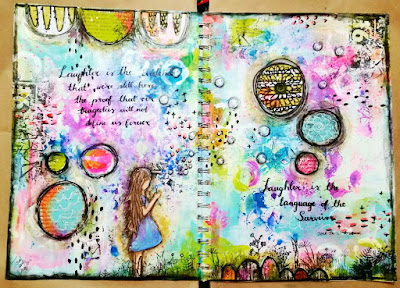 Laughter is the evidence
that we're still here
the proof that our
tragedies will not
define us forever
Laughter is the
language of the
Survivor